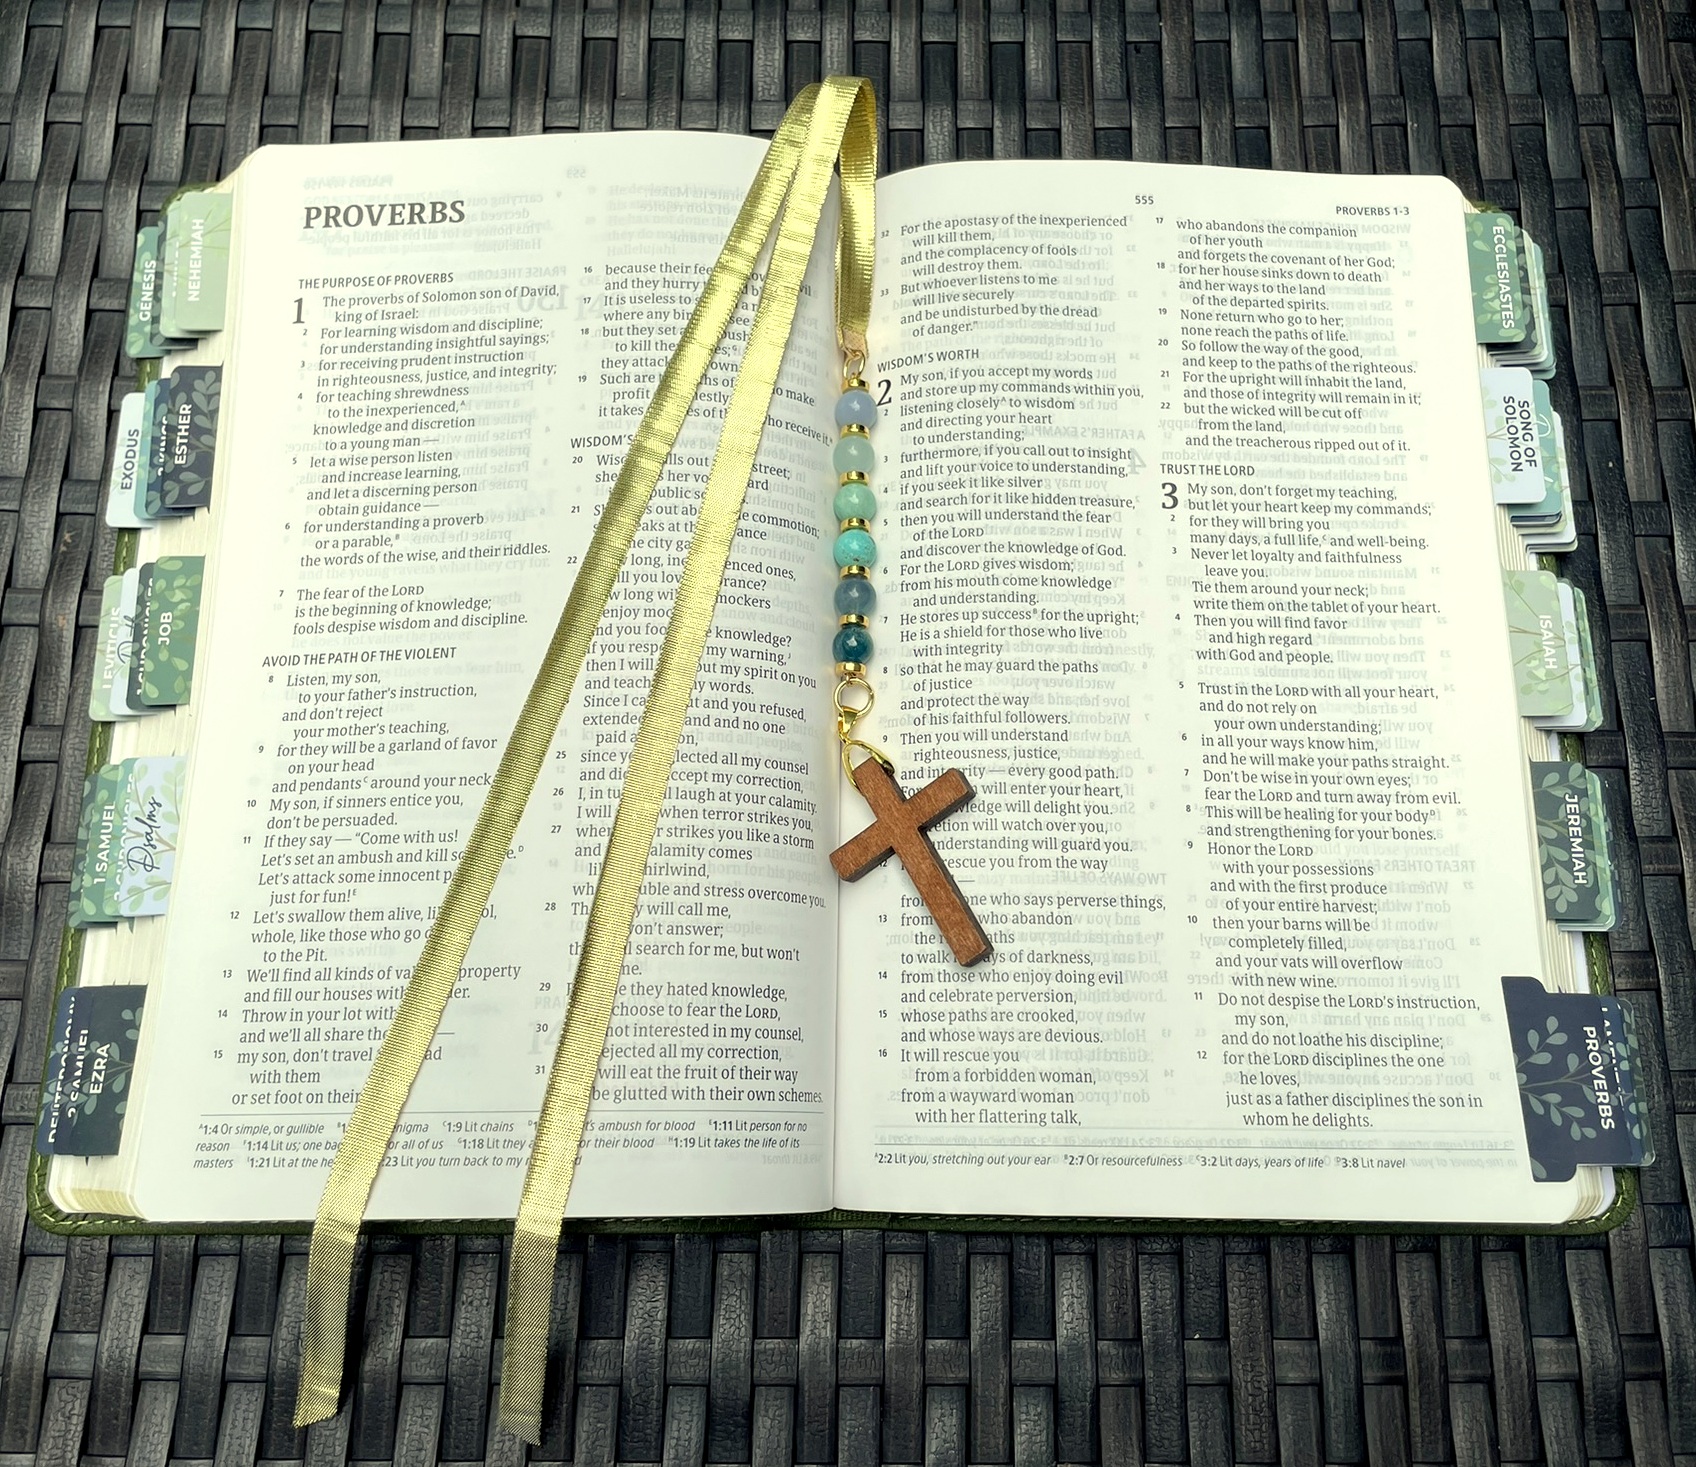 PROVERBS
THE PURPOSE OF PROVERBS
1 The proverbs of Solomon son of David,
king of Israel:
2 For learning wisdom and discipline;
for understanding insightful sayings;
3 for receiving prudent instruction
in righteousness, justice, and integrity;
4 for teaching shrewdness
to the inexperienced,ᴬ
knowledge and discretion
to a young man —
5 let a wise person listen
and increase learning,
and let a discerning person
obtain guidance —
6 for understanding a proverb
or a parable,ᴮ
the words of the wise, and their riddles.
7 The fear of the LORD
is the beginning of knowledge;
fools despise wisdom and discipline.
AVOID THE PATH OF THE VIOLENT
8 Listen, my son,
to your father's instruction,
and don't reject
your mother's teaching,
9 for they will be a garland of favor
on your head
and pendantsᶜ around your neck
10 My son, if sinners entice you,
don't be persuaded.
11 If they say — “Come with us!
Let's set an ambush and kill
Let's attack some innocent
just for fun!ᴱ
12 Let's swallow them alive,
whole, like those who go
to the Pit.
13 We'll find all kinds of property
and fill our houses with
14 Throw in your lot with
and we'll all share the —
15 my son, don't travel
with them
or set foot on their
16 because their feet
and they hurry
17 It is useless to
where any
18 but they set
to kill
they attack own
19 Such are the of
profit make
it takes of receive it.
WISDOM'S
20 street;
she her
public
21 out commotion;
at the
the city
22 long,
will you
long mockers
enjoy
and you knowledge?
23 If you my warning,
then I will out my spirit on you
and teach my words.
24 Since I and you refused,
extended and no one
paid
25 since all my counsel
and did accept my correction,
26 I, in laugh at your calamity.
I will when terror strikes you,
27 when strikes you like a storm
and calamity comes
whirlwind,
and stress overcome you.
28 will call me,
won't answer;
search for me, but won't
me.
29 they hated knowledge,
choose to fear the LORD,
30 not interested in my counsel,
rejected all my correction,
31 will eat the fruit of their way
be glutted with their own schemes.
ᴬ1:4 Or simple, or gullible ᶜ1:9 Lit chains ambush for blood ᴱ1:11 Lit person for no
reason 1:14 Lit us; one for all of us 1:18 Lit they for their blood ᴴ1:19 Lit takes the life of its
masters 1:21 Lit at the 23 Lit you turn back to my
555
PROVERBS 1-3
32 For the apostasy of the inexperienced
will kill them,
and the complacency of fools
will destroy them.
33 But whoever listens to me
will live securely
and be undisturbed by the dread
of danger.”
WISDOM'S WORTH
2 My son, if you accept my words
and store up my commands within you,
2 listening closelyᴬ to wisdom
and directing your heart
to understanding;
3 furthermore, if you call out to insight
and lift your voice to understanding,
4 if you seek it like silver
and search for it like hidden treasure,
5 then you will understand the fear
of the LORD
and discover the knowledge of God.
6 For the LORD gives wisdom;
from his mouth come knowledge
and understanding.
7 He stores up successᴮ for the upright;
He is a shield for those who live
with integrity
8 so that he may guard the paths
of justice
and protect the way
of his faithful followers.
9 Then you will understand
righteousness, justice,
and — every good path.
will enter your heart,
will delight you.
will watch over you,
will guard you.
12 rescue you from the way
—
from one who says perverse things,
13 from who abandon
the paths
to walk of darkness,
14 from those who enjoy doing evil
and celebrate perversion,
15 whose paths are crooked,
and whose ways are devious.
16 It will rescue you
from a forbidden woman,
from a wayward woman
with her flattering talk,
17 who abandons the companion
of her youth
and forgets the covenant of her God;
18 for her house sinks down to death
and her ways to the land
of the departed spirits.
19 None return who go to her;
none reach the paths of life.
20 So follow the way of the good,
and keep to the paths of the righteous.
21 For the upright will inhabit the land,
and those of integrity will remain in it;
22 but the wicked will be cut off
from the land,
and the treacherous ripped out of it.
TRUST THE LORD
3 My son, don't forget my teaching,
but let your heart keep my commands;
2 for they will bring you
many days, a full life,ᶜ and well-being.
3 Never let loyalty and faithfulness
leave you.
Tie them around your neck;
write them on the tablet of your heart.
4 Then you will find favor
and high regard
with God and people.
5 Trust in the LORD with all your heart,
and do not rely on
your own understanding;
6 in all your ways know him,
and he will make your paths straight.
7 Don't be wise in your own eyes;
fear the LORD and turn away from evil.
8 This will be healing for your bodyᴰ
and strengthening for your bones.
9 Honor the LORD
with your possessions
and with the first produce
of your entire harvest;
10 then your barns will be
completely filled,
and your vats will overflow
with new wine.
11 Do not despise the LORD's instruction,
my son,
and do not loathe his discipline;
12 for the LORD disciplines the one
he loves,
just as a father disciplines the son in
whom he delights.
ᴬ2:2 Lit you, stretching out your ear ᴮ2:7 Or resourcefulness ᶜ3:2 Lit days, years of life ᴰ3:8 Lit navel
GENESIS
NEHEMIAH
EXODUS
2 KINGS
ESTHER
LEVITICUS
JOB
1 SAMUEL
Psalms
DEUTERONOMY
2 SAMUEL
EZRA
ECCLESIASTES
SONG OF
SOLOMON
ISAIAH
JEREMIAH
PROVERBS